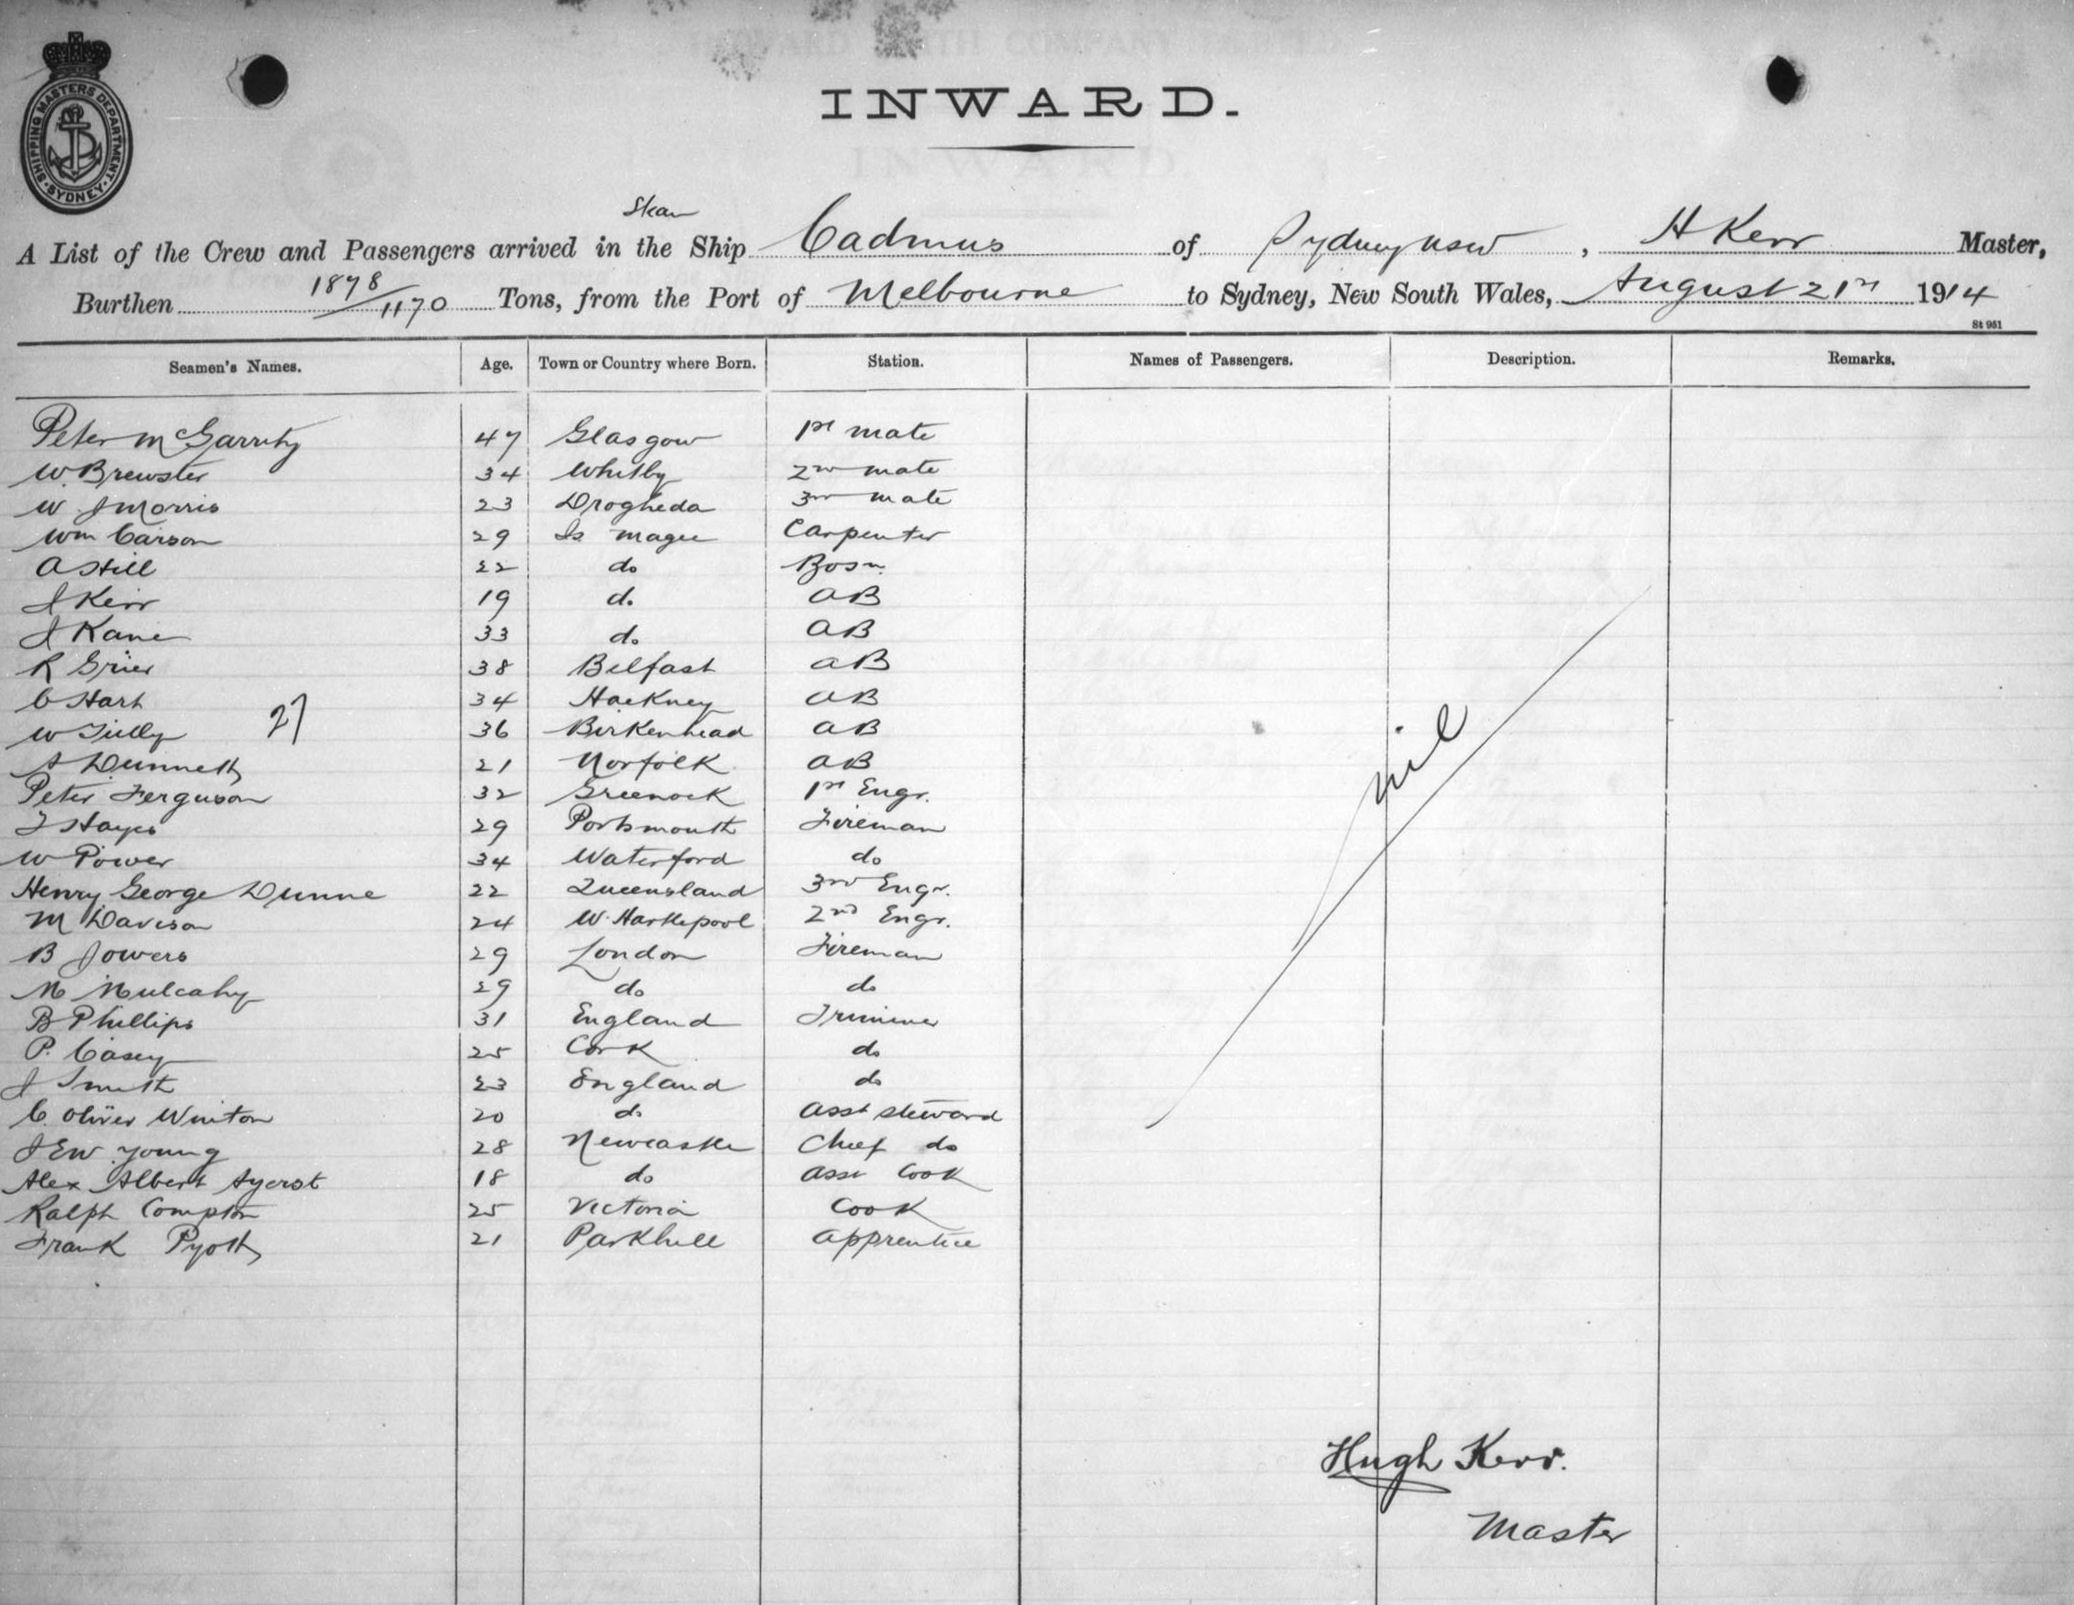 SHIPPING MASTERS DEPARTMENT
SYDNEY
INWARD.
A List of the Crew and Passengers arrived in the Ship Cadmus of Sydney NSW, H Kerr Master,
Burthen 1878/1170 Tons, from the Port of Melbourne to Sydney, New South Wales, August 21st 1914
St 951
Seamen's Names. Age. Town or Country where Born. Station. Names of Passengers. Description. Remarks.
Peter McGarrity 47 Glasgow 1st mate
W. Brewster 34 Whitby 2nd mate
W J Morris 23 Drogheda 3rd mate
Wm Carson 29 Is Magee Carpenter
A Hill 22 do Bosn.
J Kerr 19 do AB
J Kane 33 do AB
R Grier 38 Belfast AB
C Hart 34 Hackney AB
W Tully 27 36 Birkenhead AB
A Dunnett 21 Norfolk AB
Peter Ferguson 32 Greenock 1st Engr.
T Hayes 29 Portsmouth Fireman
W Power 34 Waterford do
Henry George Dunne 22 Queensland 3rd Engr.
M Davison 24 W. Hartlepool 2nd Engr.
B Jowers 29 London Fireman
M Mulcahy 29 do do
B Phillips 31 England Trimmer
P. Casey 25 Cork do
J Smith 23 England do
C. Oliver Winton 20 do Asst steward
J E W Young 28 Newcastle Chief do
Alex Albert Ayerst 18 do Asst Cook
Ralph Compton 25 Victoria Cook
Frank Pyott 21 Parkhill Apprentice
nil
Hugh Kerr.
Master